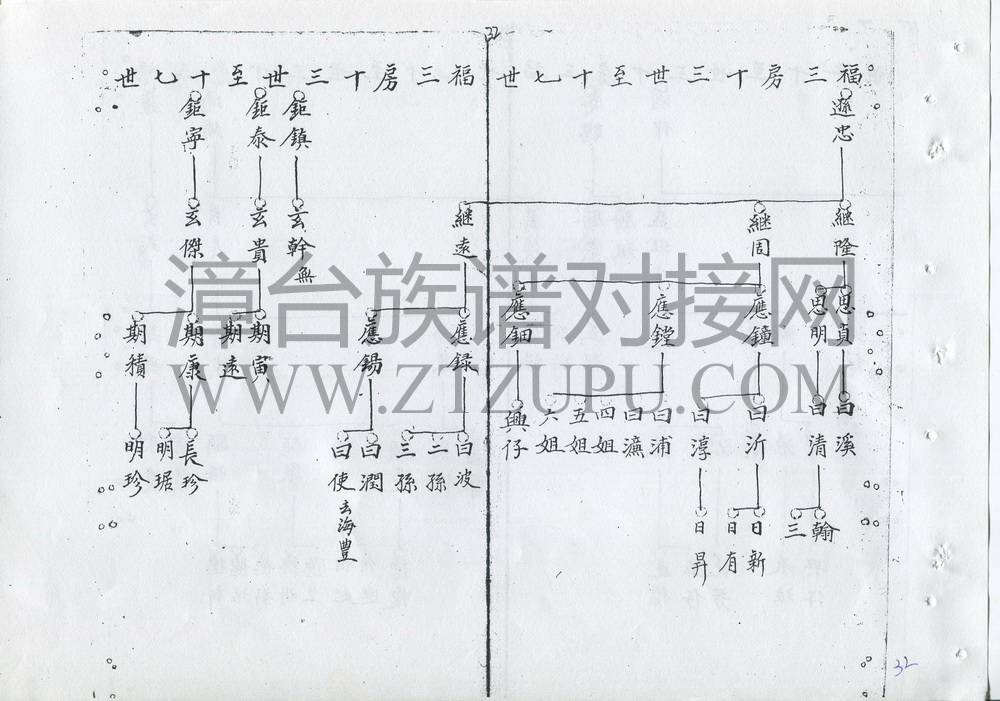 32
福三房十三世至十七世
遜忠
継隆
継周
継遠
思貞
思明
應鐘
應鏜
應鈿
應録
應錫
曰溪
曰清
曰沂
曰淳
曰浦
曰瀌
四姐
五姐
六姐
興仔
曰波
二孫
三孫
曰潤
曰使去海豊
翰
三
日新
日有
日昇
福三房十三世至十七世
鉅鎮
鉅泰
鉅寧
玄幹無
玄貴
玄傑
期寅
期遠
期康
期積
長珍
明琚
明珍
漳台族谱对接网
WWW.ZTZUPU.COM
32